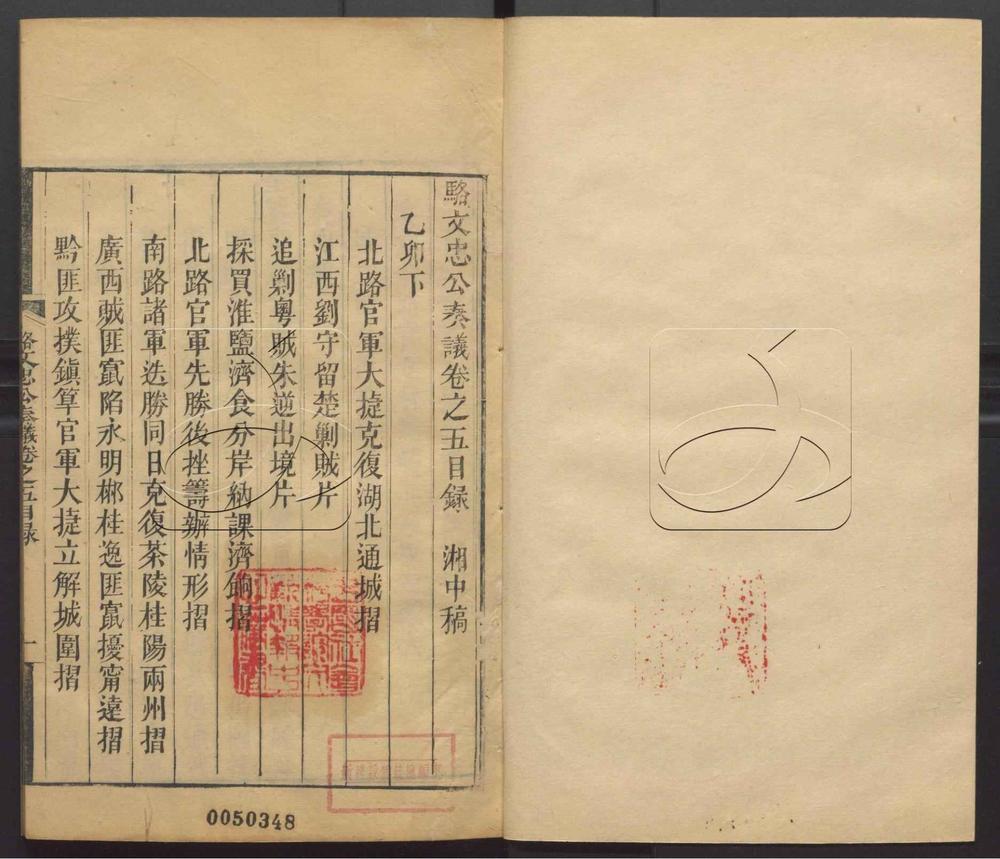 駱文忠公奏議卷之五目録　湘中稿
乙卯下
北路官軍大捷克復湖北通城摺
江西劉守留楚剿賊片
追剿粵賊朱逆出境片
採買淮鹽濟食分岸納課濟餉摺
北路官軍先勝後挫籌辦情形摺
南路諸軍迭勝同日克復茶陵桂陽兩州摺
廣西賊匪竄陷永明郴桂逸匪竄擾甯遠摺
黔匪攻撲鎮筸官軍大捷立解城圍摺
駱文忠公奏議卷之五目録
一
0050348